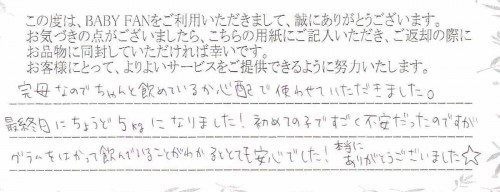 この度は、BABY FANをご利用いただきまして、誠にありがとうございます。
お気づきの点がございましたら、こちらの用紙にご記入いただき、ご返却の際に
お品物に同封していただければ幸いです。
お客様にとって、よりよいサービスをご提供できるように努力いたします。
完母なのでちゃんと飲めているか心配で使わせていただきました。
最終日にちょうど5kgになりました!初めての子ですごく不安だったのですが
グラムをはかって飲んでいることがわかるととても安心でした!本当にありがとうございました☆